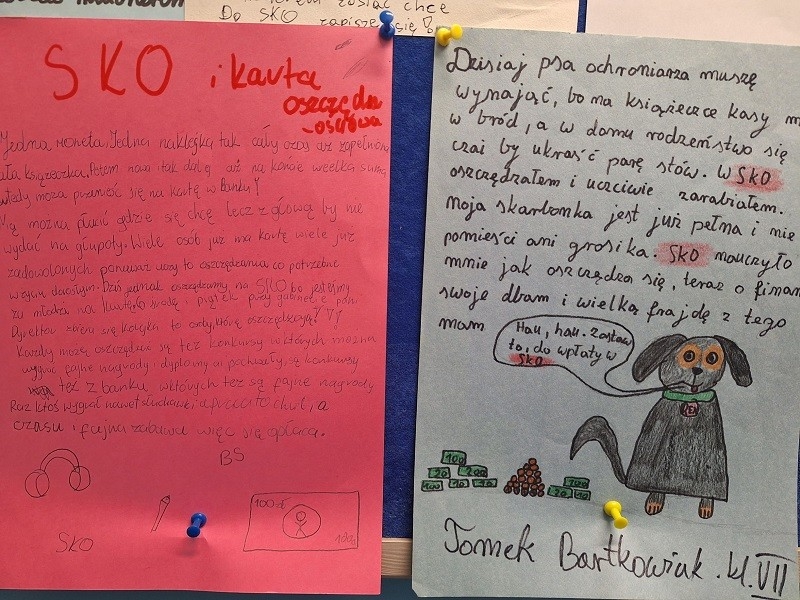 chce
Do SKO zapisze się!
SKO i karta
oszczędno
-ościowa
Jedna moneta, Jedna naklejka tak cały czas aż zapełnona
książeczka. Potem nowa i tak dalej aż na koncie wielka suma
wtedy moża przenieść się na kartę w Banku!
można płacić gdzie się chcę lecz z głową by nie
wydać na głupoty. Wiele osób już ma kartę wiele już
zadowolonych ponieważ uczy to oszczędzania co potrzebne
w życiu dorosłym. Dziś jednak oszczędzamy na SKO bo jesteśmy
za młodzi na kartę. środę i piątek przy gabinecie pani
Dyrektor zbiera się kolejka to osoby, które oszczędzają!
Każdy może oszczędzać są też konkursy w których można
wygrać fajne nagrody i dyplomy a i pochwały, są konkursy
też z banku w których też są fajne nagrody
Raz ktoś wygrał nawet słuchawki a praca to chwila, a
czasu i fajna zabawa więc się opłaca.
BS
100 zł
SKO
Dzisiaj psa ochroniarza muszę
wynająć, bo na książeczce kasy m
w bród, a w domu rodzeństwo się
czai by ukraść parę stów. W SKO
oszczędzałem i uczciwie zarabiałem.
moja skarbonka jest już pełna i nie
pomieści ani grosika. SKO nauczyło
mnie jak oszczędza się, teraz o finan
swoje dbam i wielką frajdę z tego
mam
Hau, hau. Zostaw
to, do wpłaty w
SKO
100
20 20
100 10 10
100
20 10
Tomek Bartkowiak. kl. VII